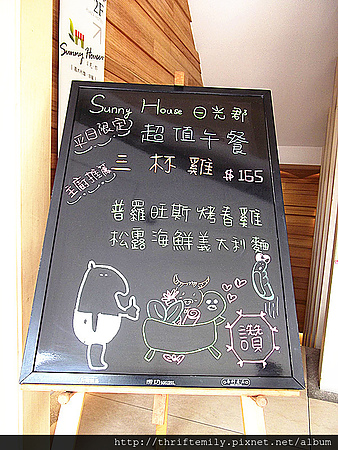 2F
Sunny House
Sunny House 日光郡
平日限定
超值午餐
主廚推薦
三杯雞 $165
普羅旺斯烤春雞
松露海鮮義大利麵
讚
http://thriftemily.pixnet.net/album